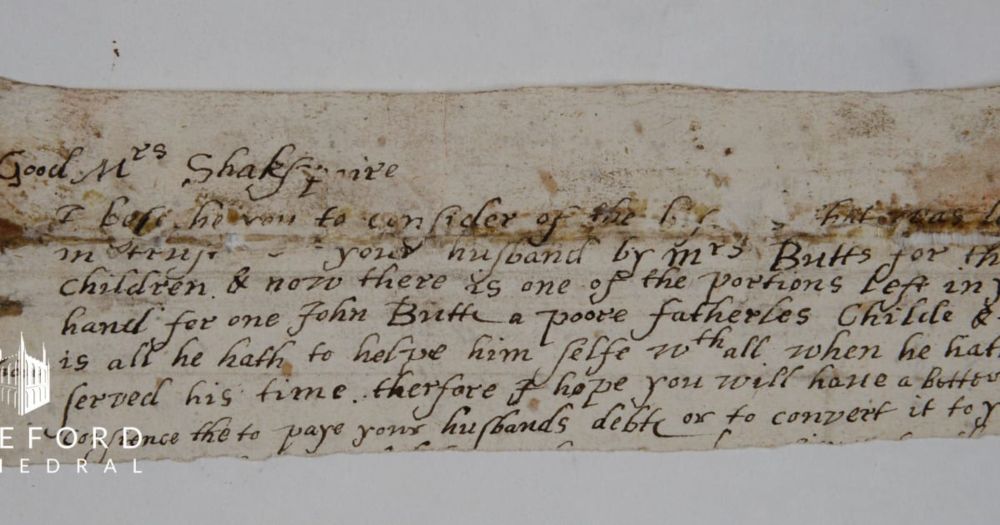 Good Mrs Shakspaire
I beseche you to consider of the b that was l
in trust your husband by Mrs Butts for th
Children & now there is one of the portions left in y
hand for one John Butte a poore fatherles Childe &
is all he hath to helpe him selfe wth all when he hat
served his time. therfore I hope you will have a better
the to paye your husbands debte or to convert it to y
EFORD
HEDRAL